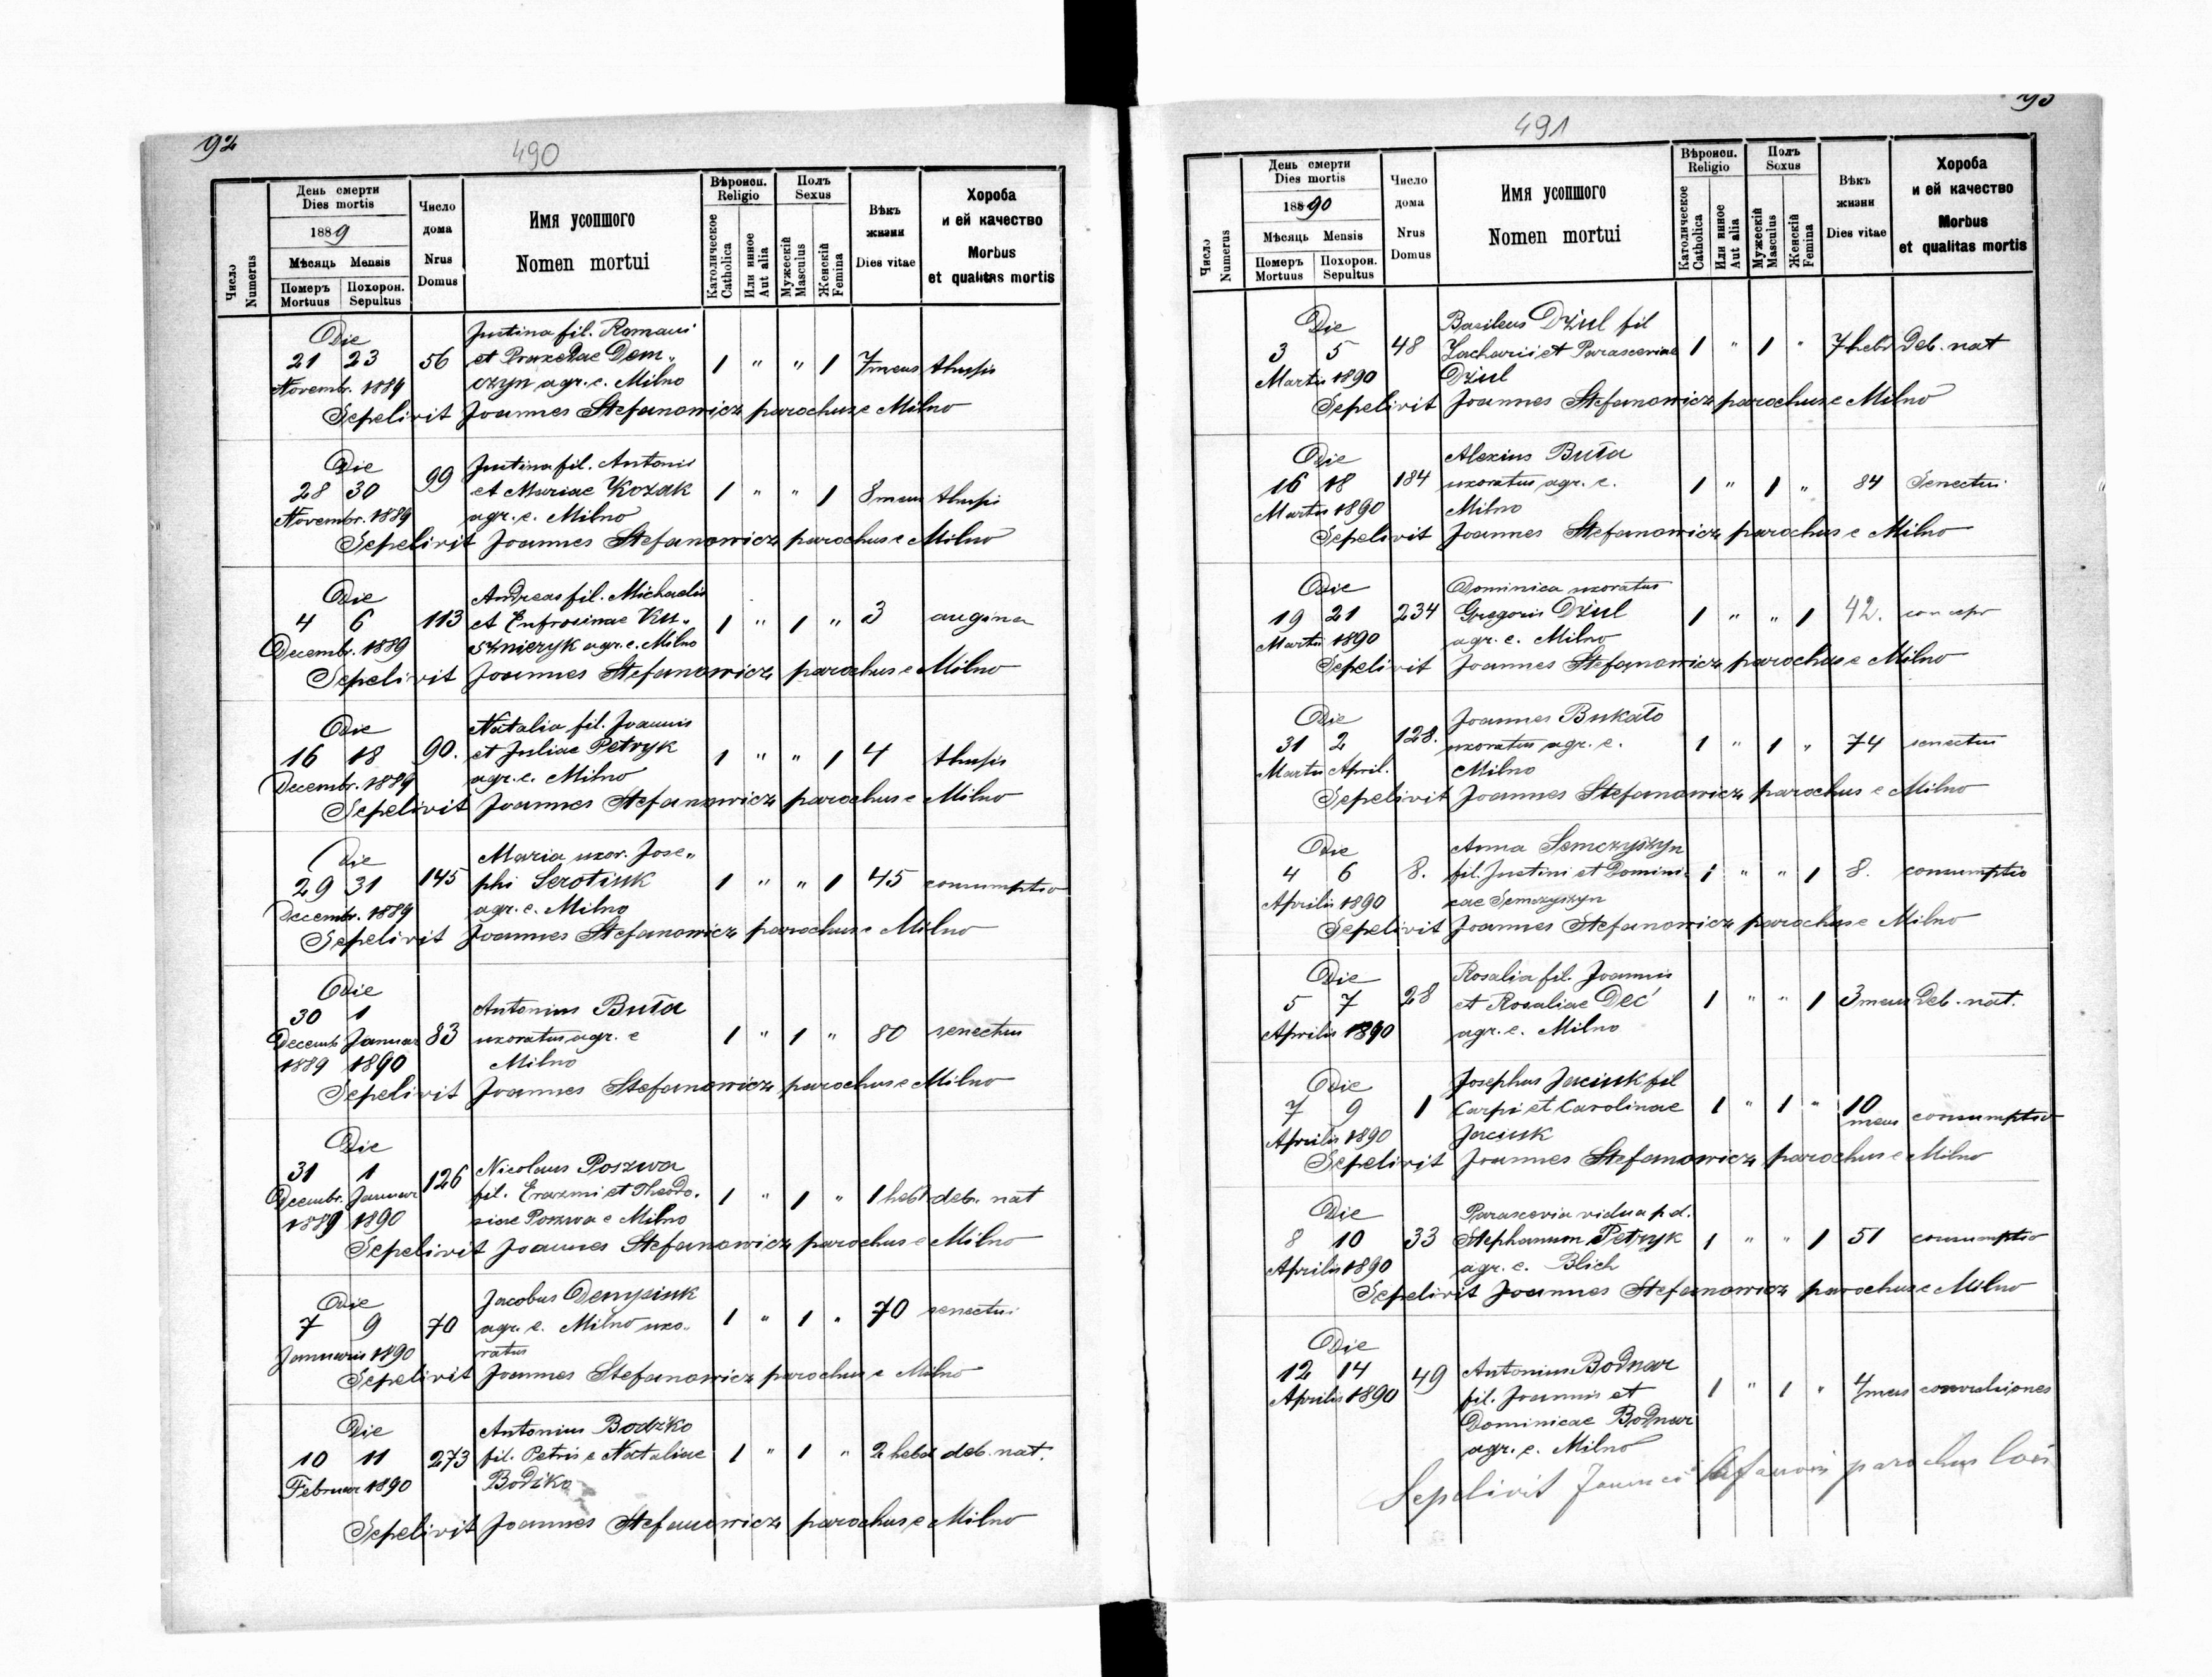 92
490
Число
Numerus
День смерти
Dies mortis
1889
Мѣсяць Mensis
Померъ
Mortuus
Похорон.
Sepultus
Число
дома
Nrus
Domus
Имя усопшого
Nomen mortui
Вѣроисп.
Religio
Католическое
Catholica
Или инное
Aut alia
Полъ
Sexus
Мужескій
Masculus
Женскій
Femina
Вѣкъ
жизни
Dies vitae
Хороба
и ей качество
Morbus
et qualitas mortis
Die
Justina fil. Romani
21 23 56 et Praxedae Dem„ 1 „ „ 1 7 mens thusis
Novembr. 1889 czyn agr. e. Milno
Sepelivit Joannes Stefanowicz parochus e Milno
Die
Justina fil. Antonii
28 30 99 et Mariae Kozak 1 „ „ 1 8 mens thusis
Novembr. 1889 agr. e. Milno
Sepelivit Joannes Stefanowicz parochus e Milno
Die
Andreas fil. Michaelis
4 6 113 et Eufrosinae Ku„ 1 „ 1 „ 3 angina
Decembr. 1889 sznieryk agr. e. Milno
Sepelivit Joannes Stefanowicz parochus e Milno
Die
Natalia fil. Joannis
16 18 90. et Juliae Petryk 1 „ „ 1 4 thusis
Decembr. 1889 agr. e. Milno
Sepelivit Joannes Stefanowicz parochus e Milno
Die
Maria uxor. Jose„
29 31 145 phi Serotiuk 1 „ „ 1 45 consumptio
Decembr. 1889 agr. e. Milno
Sepelivit Joannes Stefanowicz parochus e Milno
Die
30 1 Antonius Buła
Decemb Januar 83 uxoratus agr. e 1 „ 1 „ 80 senectus
1889 1890 Milno
Sepelivit Joannes Stefanowicz parochus e Milno
Die
31 1 126 Nicolaus Poszwa
Decembr. Januar fil. Erazmi et Theodo. 1 „ 1 „ 1 hebd deb. nat
1889 1890 siae Poszwa e Milno
Sepelivit Joannes Stefanowicz parochus e Milno
Die
Jacobus Denysiuk
7 9 70 agr. e. Milno uxo„ 1 „ 1 „ 70 senectus
Januarii 1890 ratus
Sepelivit Joannes Stefanowicz parochus e Milno
Die
Antonius Bodźko
10 11 273 fil. Petri e Nataliae 1 „ 1 „ 2 hebd deb. nat.
Februar 1890 Bodźko
Sepelivit Joannes Stefanowicz parochus e Milno
93
491
Число
Numerus
День смерти
Dies mortis
18890
Мѣсяць Mensis
Померъ
Mortuus
Похорон.
Sepultus
Число
дома
Nrus
Domus
Имя усопшого
Nomen mortui
Вѣроисп.
Religio
Католическое
Catholica
Или инное
Aut alia
Полъ
Sexus
Мужескій
Masculus
Женскій
Femina
Вѣкъ
жизни
Dies vitae
Хороба
и ей качество
Morbus
et qualitas mortis
Die
Basileus Dziul fil
3 5 48 Zacharii et Parasceviae 1 „ 1 „ 7 hebd Deb. nat
Martii 1890 Dziul
Sepelivit Joannes Stefanowicz parochus e Milno
Die
Alexius Buła
16 18 184 uxoratus agr. e. 1 „ 1 „ 84 Senectus
Martii 1890 Milno
Sepelivit Joannes Stefanowicz parochus e Milno
Die
Dominica uxoratus
19 21 234 Gregoris Dziul 1 „ „ 1 42.
Martii 1890 agr. e. Milno
Sepelivit Joannes Stefanowicz parochus e Milno
Die
Joannes Bukało
31 2 128. uxoratus agr. e. 1 „ 1 „ 74 senectus
Martii April. Milno
Sepelivit Joannes Stefanowicz parochus e Milno
Die
Anna Semczyszyn
4 6 8. fil. Justini et Domini„ 1 „ „ 1 8. consumptio
Aprilis 1890 cae Semczyszyn
Sepelivit Joannes Stefanowicz parochus e Milno
Die
Rosalia fil. Joannis
5 7 28 et Rosaliae Deć 1 „ „ 1 3 mens Deb. nat.
Aprilis 1890 agr. e. Milno
Die
Josephus Jaciuk fil
7 9 1 Carpi et Carolinae 1 „ 1 „ 10 mens consumptio
Aprilis 1890 Jaciuk
Sepelivit Joannes Stefanowicz parochus e Milno
Die
Parascevia vidua p.d.
8 10 33 Stephanum Petryk 1 „ „ 1 51 consumptio
Aprilis 1890 agr. e. Blich
Sepelivit Joannes Stefanowicz parochus e Milno
Die
12 14 49 Antonius Bodnar
Aprilis 1890 fil. Joannis et 1 „ 1 „ 4 mens convulsiones
Dominicae Bodnar
agr. e. Milno
Sepelivit Joannes Stefanowicz parochus loci